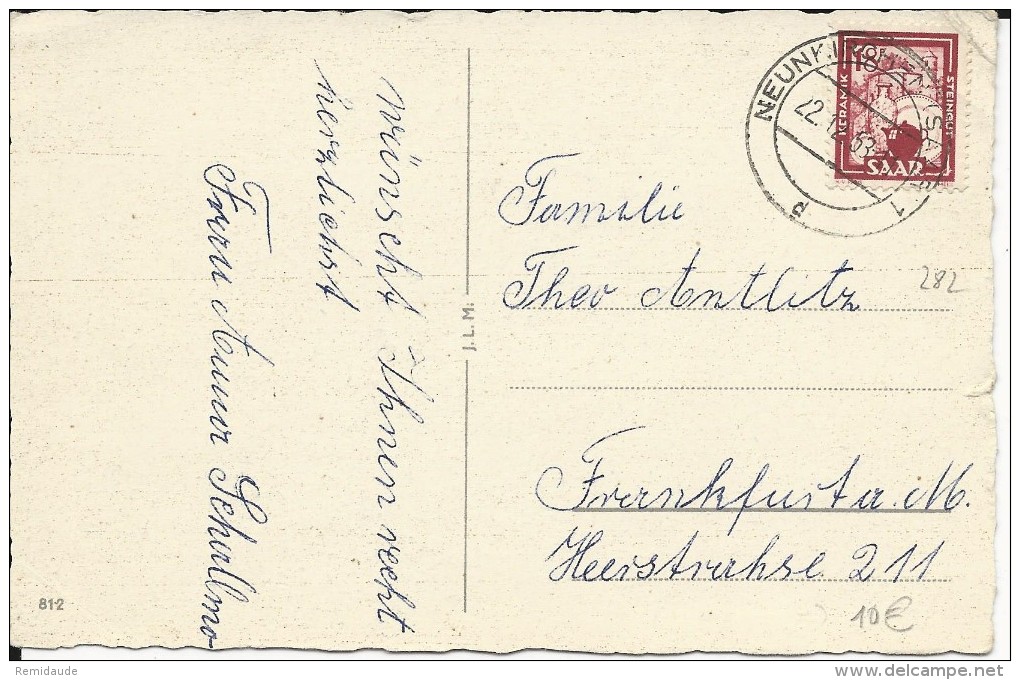 wünscht Ihnen recht
herzlichst
Frau Anna Schallmo
J.L.M.
81-2
NEUNKIRCHEN (SAAR) 1
d
18
KERAMIK
STEINGUT
SAAR
Familie
Theo Antlitz
282
Frankfurt a. M.
Heerstrahse 211
10€
Remidaude
www.delcampe.net